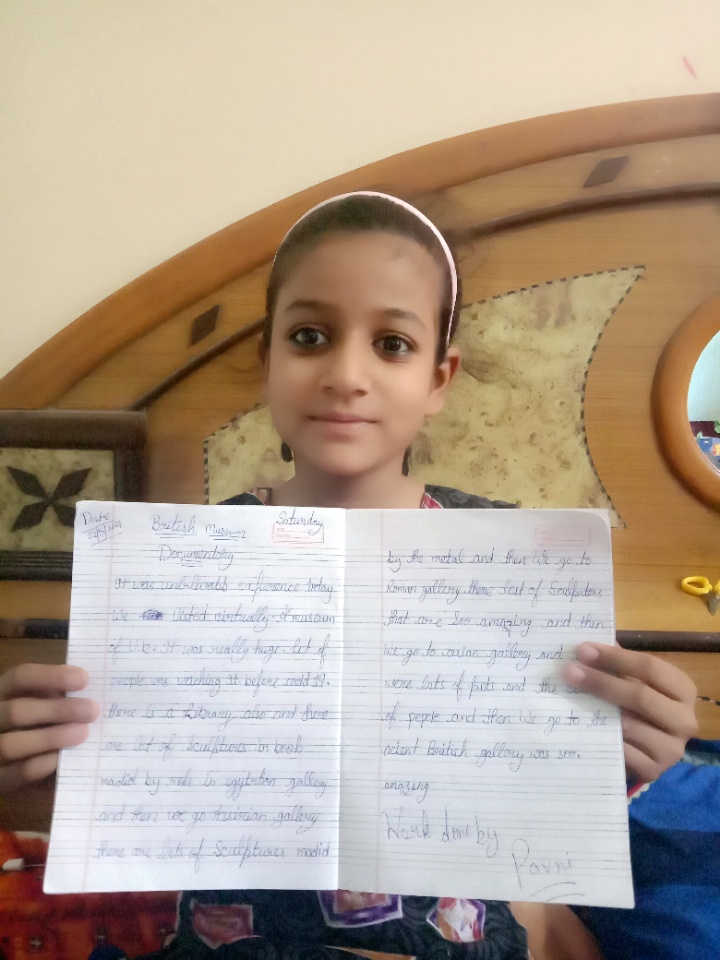 Date
British Museum
Saturday
Documentory
It was unbilevable exprience today
we visted virtually it museum
of U.K. It was really huge. lot of
people
before covid 19.
there is a Library also and there
are lot of sculptures in book
madid by in egybtion gallery
and then we go Assirian gallery
there are lots of Sculptures madid
by the metal and then we go to
Roman gallery there lost of Sculputers
that are soo amazing and then
we go to asian gallery and
were lots of pots and the
of people and then we go to the
acient British gallery was soo.
amazing
Work done by
Pavni